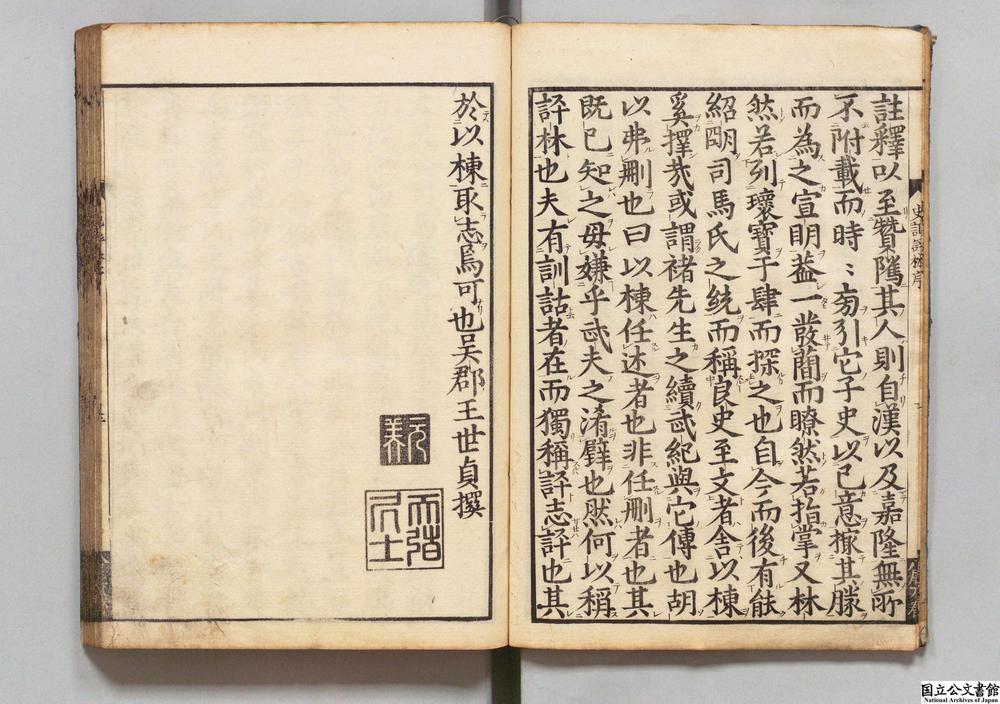 註釋以至贊隲其人則自漢以及嘉隆無所
不附載而時〻旁引它子史以已意撳其滕
而為之宣明葢一發蔨而瞭然若指掌又林
然若列瓌寶于肆而探之也自今而後有䏻
紹明司馬氏之統而稱良史至文者舍以棟
奚擇㢤或謂褚先生之續武紀與它傳也胡
以弗刪也曰以棟任述者也非任刪者也其
既已知之毋嫌乎武夫之淆璧也然何以稱
評林也夫有訓詁者在而獨稱評志評也其
於以棟取志焉可也吳郡王世貞撰
元美
天弢居士
史記評林序
国立公文書館
National Archives of Japan